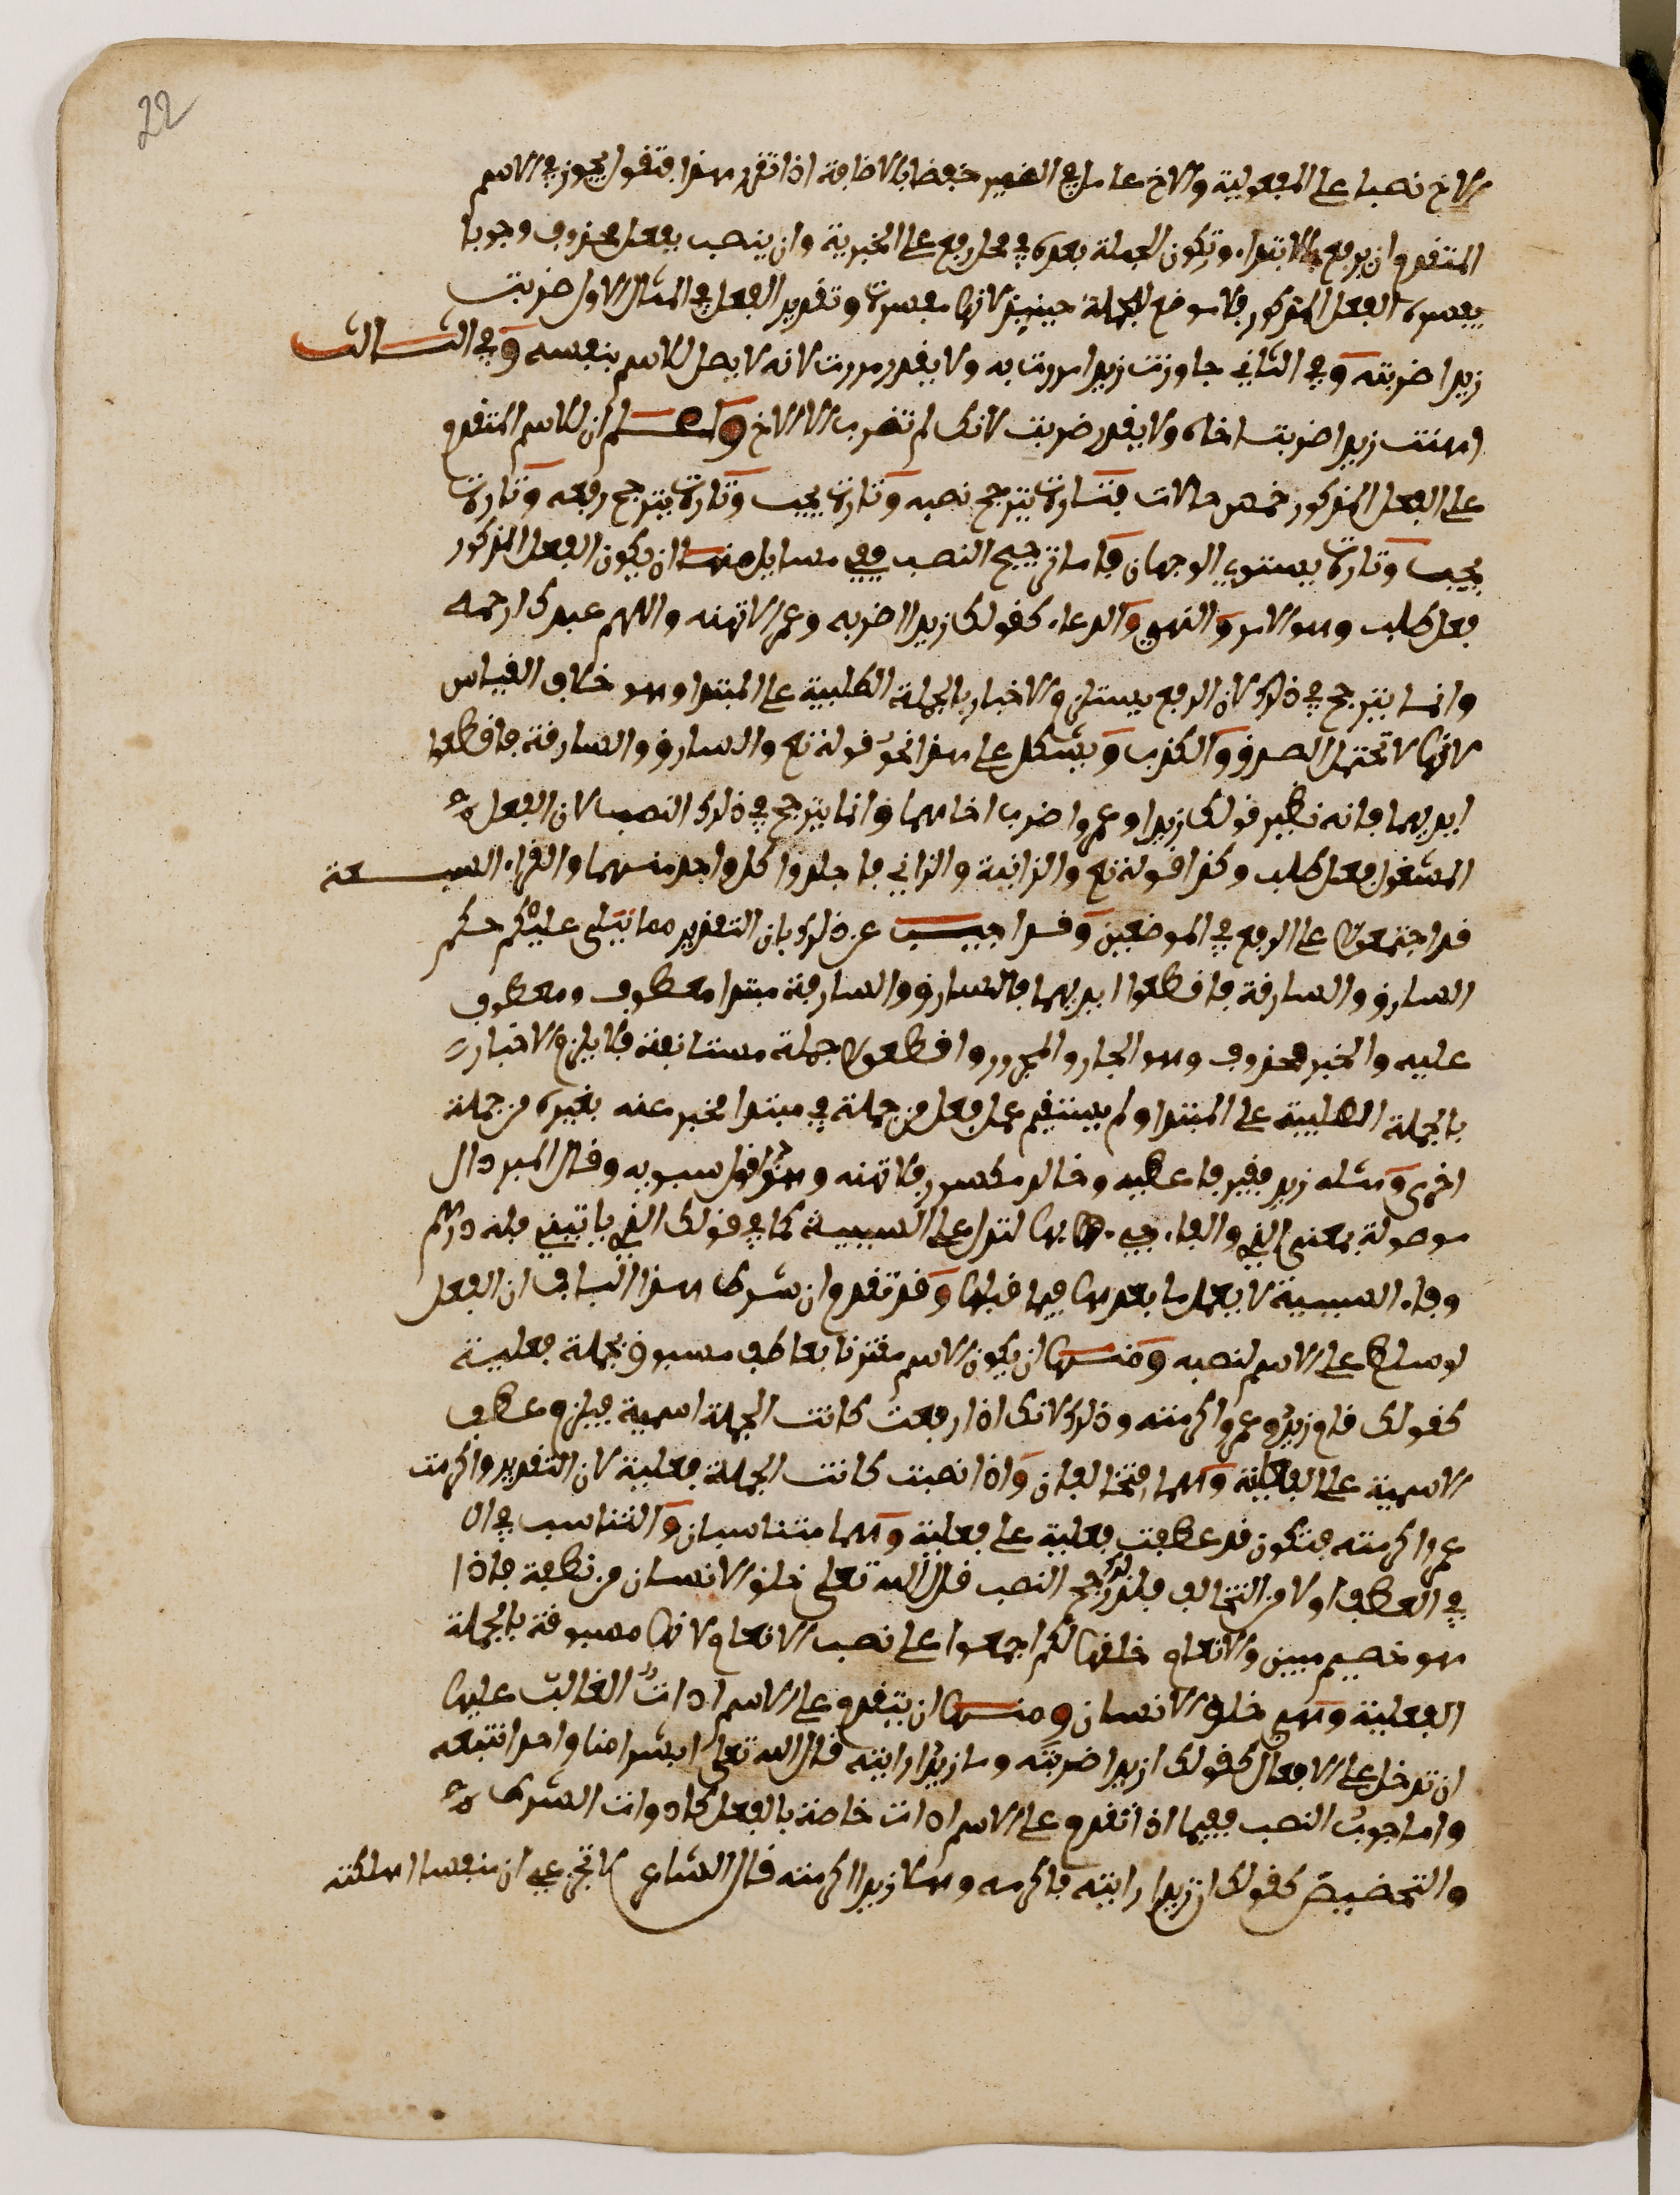 22
الاخ نصبا على المفعولية والاخ عامل في الضمير خفضا بالاضافة اذا تقرر هذا فنقول يجوز في الاسم
المتقدم ان يرفع بالابتداء وتكون الجملة بعده في محل رفع على الخبرية وان ينصب بفعل محذوف وجوبا
يفسره الفعل المذكور فلا موضع للجملة حينئذ لانها مفسرة وتقدير الفعل في المثال الاول ضربت
زيدا ضربته وفي الثاني جاوزت زيدا مررت به ولا يقدر مررت لانه لا يصل للاسم بنفسه وفي الثالث
اهنت زيدا ضربت اخاه ولا يقدر ضربت لانك لم تضرب الا الاخ واعلم ان للاسم المتقدم
على الفعل المذكور خمس حالات فتارة يترجح نصبه وتارة يجب وتارة يترجح رفعه وتارة
يجب وتارة يستوي الوجهان فاما ترجيح النصب ففي مسايل منها ان يكون الفعل المذكور
فعل طلب وهو الامر والنهي والدعاء كقولك زيدا اضربه وعمرا لا تهنه واللهم عبدك ارحمه
وانما يترجح في ذلك لان الرفع يستلزم الاخبار بالجملة الطلبية على المبتدا وهو خلاف القياس
لانها لا تحتمل الصدق والكذب ويشكل على هذا نحو قوله تع والسارق والسارقة فاقطعوا
ايديهما فانه نظير قولك زيدا وعمروا ضرب اخاهما وانما يترجح في ذلك النصب لان الفعل
المشغول فعل طلب وكذا قوله تع والزانية والزاني فاجلدوا كل واحد منهما والقراء السبعة
قد اجتمعوا على الرفع في الموضعين وقد اجيب عن ذلك بان التقدير مما يتلى عليكم حكم
السارق والسارقة فاقطعوا ايديهما فالسارق والسارقة مبتدا معطوف ومعطوف
عليه والخبر محذوف وهو الجار والمجرور واقطعوا جملة مستانفة فلا يلزم الاخبار
بالجملة الطلبية على المبتدا ولم يستقم عمل فعل من جملة في مبتدا مخبر عنه بغيره من جملة
اخرى ومثله زيد فقير فاعطيه وخالد مكسور فلا تهنه وهذا قول سيبويه وقال المبرد ال
موصولة بمعنى الذي والفاء جيء بها لتدل على السببية كما في قولك الذي ياتيني فله درهم
وفاء السببية لا يعمل ما بعدها فيما قبلها وقد تقدم ان شرط هذا الباب ان الفعل
لو سلط على الاسم لنصبه ومنها ان يكون الاسم مقترنا بعاطف مسبوق بجملة فعلية
كقولك قام زيد وعمروا اكرمته وذلك لانك اذا رفعت كانت الجملة اسمية فيلزم عطف
الاسمية على الفعلية وهما مختلفان واذا نصبت كانت الجملة فعلية لان التقدير واكرمت
عمروا اكرمته فتكون قد عطفت فعلية على فعلية وهما متناسبان والتناسب
في العطف اولى من التخالف فلذلك رجح النصب قال الله تعلى خلق الانسان من نطفة فاذا
هو خصيم مبين والانعام خلقها لكم اجمعوا على نصب الانعام لانها مسبوقة بالجملة
الفعلية وهي خلق الانسان ومنها ان يتقدم على الاسم اداة الغالب عليها
ان تدخل على الافعال كقولك ازيدا ضربته وما زيدا رايته قال الله تعلى ابشرا منا واحدا نتبعه
واما وجوب النصب ففيما اذا تقدم على الاسم اداة خاصة بالفعل كادوات الشرط
والتحضيض كقولك ان زيدا رايته فاكرمه وهلا زيدا اكرمته قال الشاعر لا تجزعي ان منفسا اهلكته